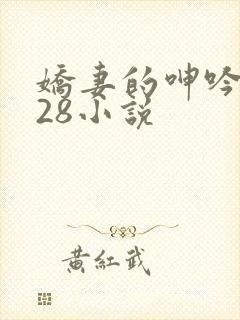 嬌妻的呻吟
28小說
黃紅武